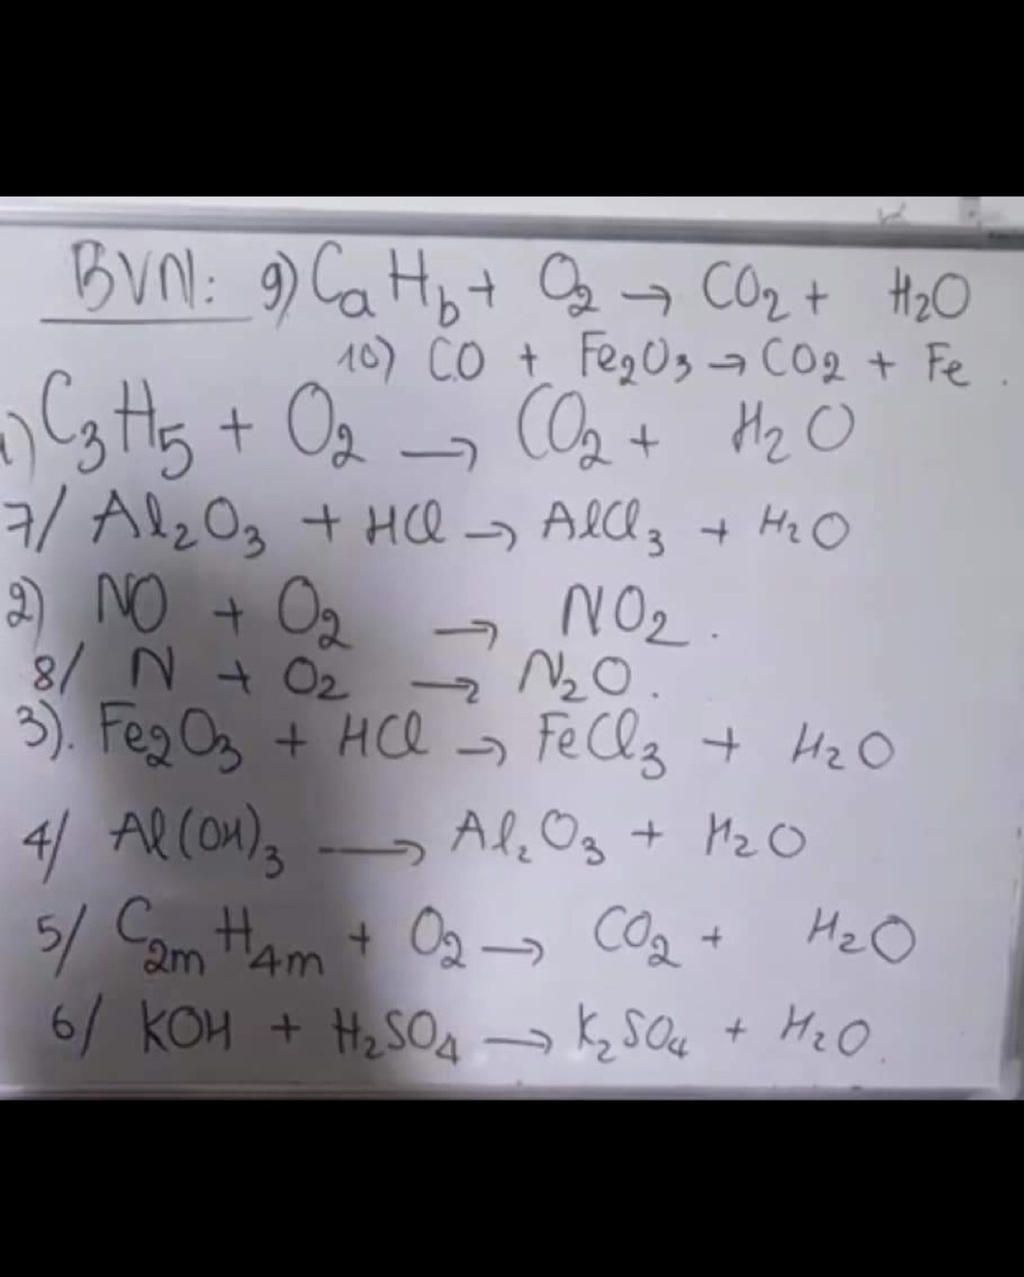 BVN: 9) CaHb + O2 → CO2 + H2O
10) CO + Fe2O3 → CO2 + Fe.
1) C3H5 + O2 → CO2 + H2O
7/ Al2O3 + HCl → AlCl3 + H2O
2) NO + O2 → NO2.
8/ N + O2 → N2O.
3). Fe2O3 + HCl → FeCl3 + H2O
4/ Al(OH)3 → Al2O3 + H2O
5/ C2mH4m + O2 → CO2 + H2O
6/ KOH + H2SO4 → K2SO4 + H2O.